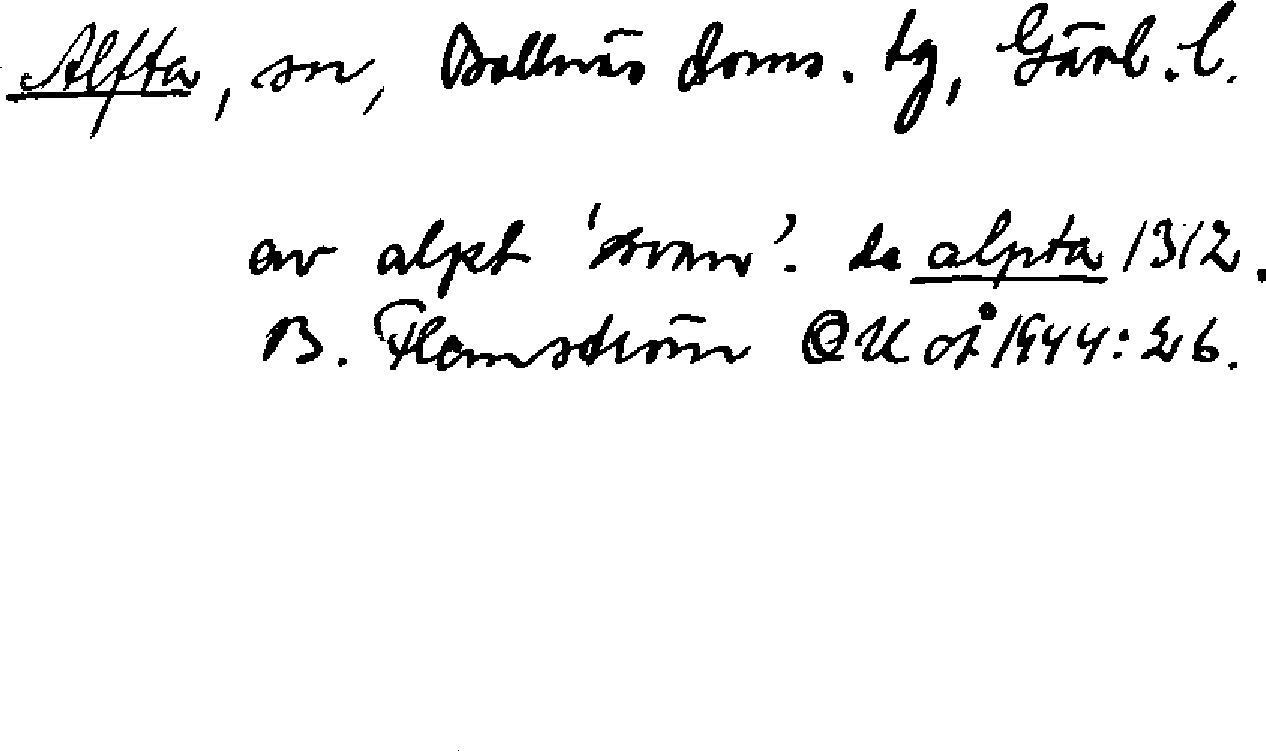 Alfta, sn, Bollnäs doms. tg, Gävl. l.
av alpt 'svan'. de alpta 1312.
B. Flemström OUOÅ 1944: 26.